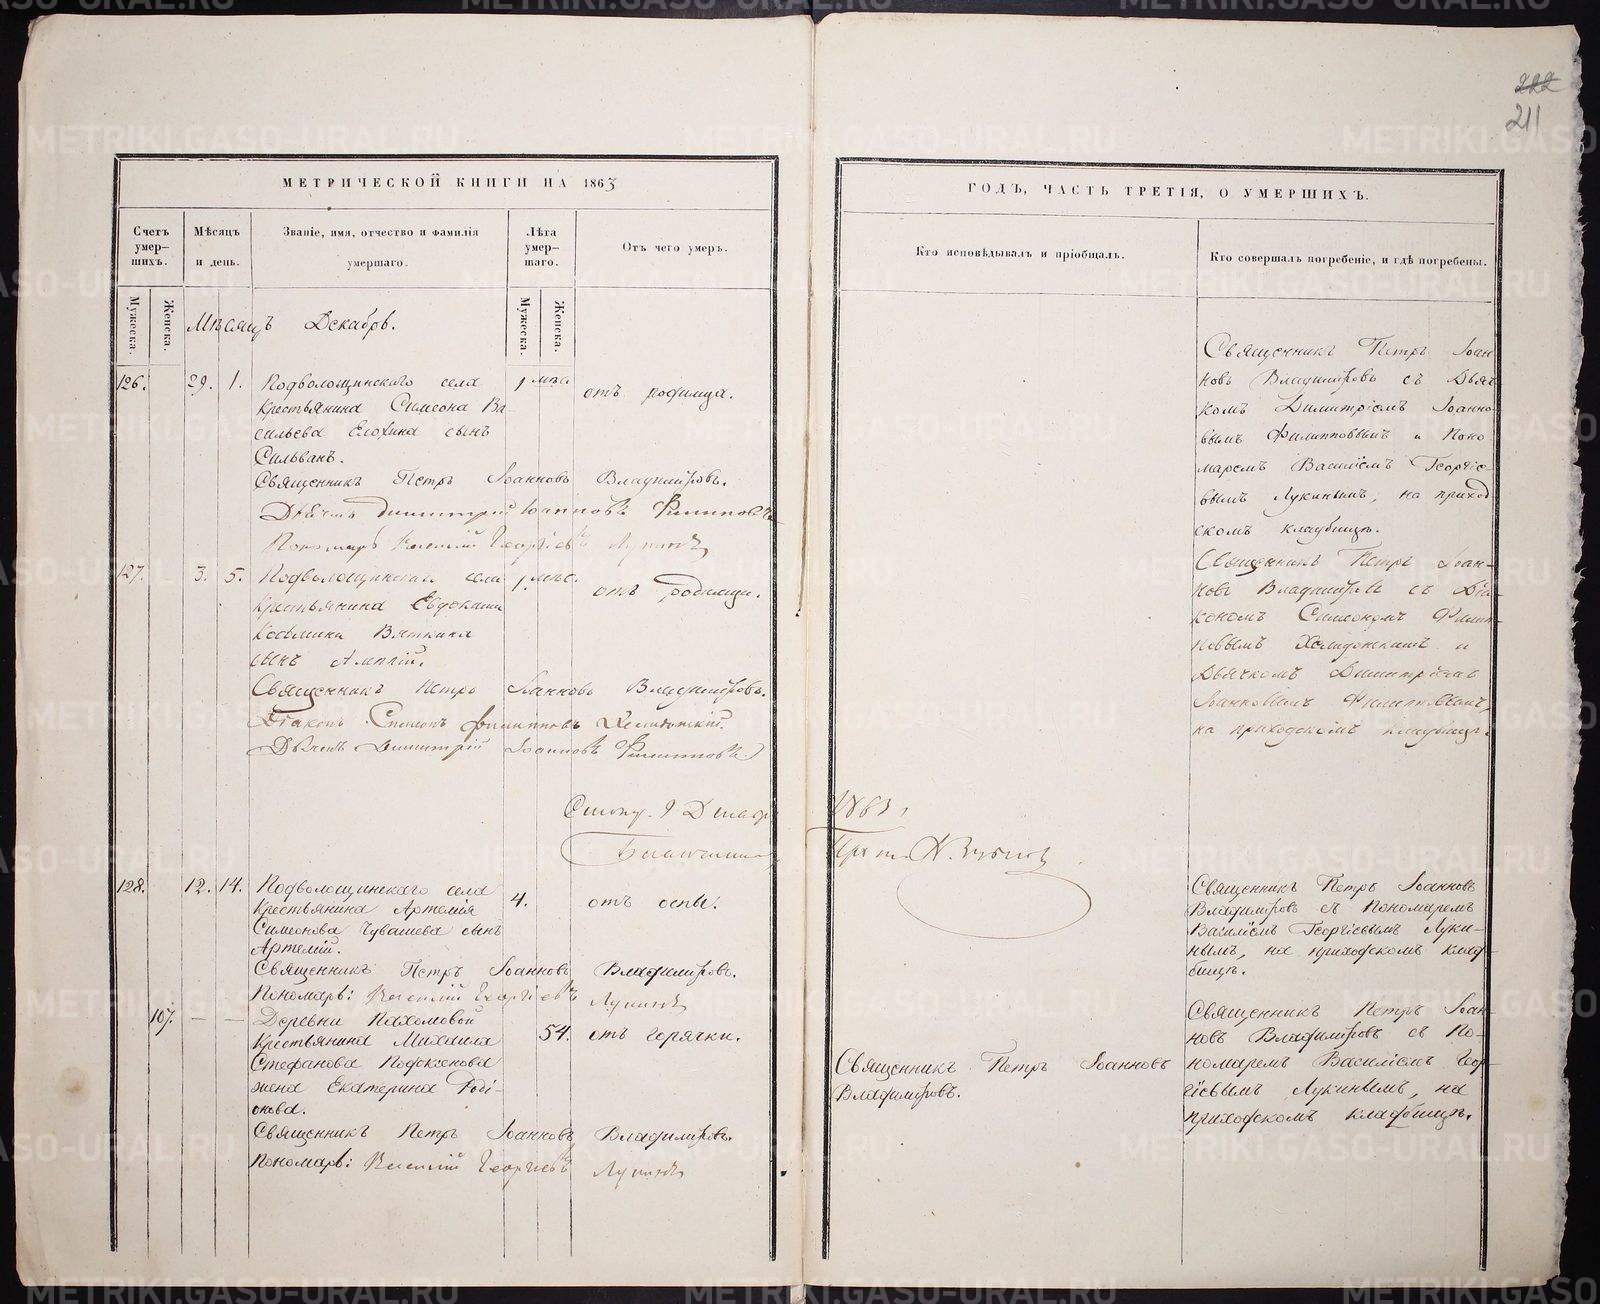 222
211
МЕТРИЧЕСКОЙ КНИГИ НА 1863
ГОДЪ, ЧАСТЬ ТРЕТІЯ, О УМЕРШИХЪ.
Счетъ умер-
шихъ.
Мѣсяцъ
и день.
Званіе, имя, отчество и фамилія
умершаго.
Лѣта
умер-
шаго.
Отъ чего умеръ.
Кто исповѣдывалъ и пріобщалъ.
Кто совершалъ погребеніе, и гдѣ погребены.
Мужеска.
Женска.
Мужеска.
Женска.
Мѣсяцъ Декабрь.
126. 29. 1. Подволошинскаго села
Крестьянина Симеона Ва
сильева Елохина сынъ
Сильванъ.
1 мѣс.
отъ родимца.
Священникъ Петръ Іоанновъ Владиміровъ.
Дьячекъ Димитрій Іоанновъ Филипповъ
Пономарь Василій Георгіевъ Лукинъ
Священникъ Петръ Іоан
новъ Владиміровъ съ Дьяч
комъ Димитріемъ Іоанно
вымъ Филипповымъ и Поно
маремъ Василіемъ Георгіе-
вымъ Лукинымъ, на приход
скомъ кладбищѣ.
127. 3. 5. Подволошинскаго села
Крестьянина Евдокима
Козьмина Вяткина
сынъ
1. мѣс.
отъ родимца.
Священникъ Петръ Іоанновъ Владиміровъ.
Діаконъ Симеонъ Филипповъ
Дьячекъ Димитрій Іоанновъ Филипповъ
Священникъ Петръ Іоан-
новъ Владиміровъ съ Діа-
кономъ Симеономъ Филип-
повымъ и
Дьячкомъ Димитріемъ
Іоанновымъ Филипповымъ,
на приходскомъ кладбищѣ.
9 Декабр
1863,
Благочинный
Прот.
128. 12. 14. Подволошинскаго села
Крестьянина Артемія
Симеонова Чувашева сынъ
Артемій.
4.
отъ оспы.
Священникъ Петръ Іоанновъ Владиміровъ.
Пономарь: Василій Георгіевъ Лукинъ
Священникъ Петръ Іоанновъ
Владиміровъ съ Пономаремъ
Василіемъ Георгіевымъ Луки-
нымъ, на приходскомъ клад-
бищѣ.
107. — — Деревни Пахомовой
Крестьянина Михаила
Стефанова
жена Екатерина Роді-
онова.
54.
отъ горячки.
Священникъ Петръ Іоанновъ Владиміровъ.
Пономарь: Василій Георгіевъ Лукинъ
Священникъ Петръ Іоанновъ
Владиміровъ.
Священникъ Петръ Іоан-
новъ Владиміровъ съ По-
номаремъ Василіемъ Геор-
гіевымъ Лукинымъ, на
приходскомъ кладбищѣ.
METRIKI.GASO-URAL.RU